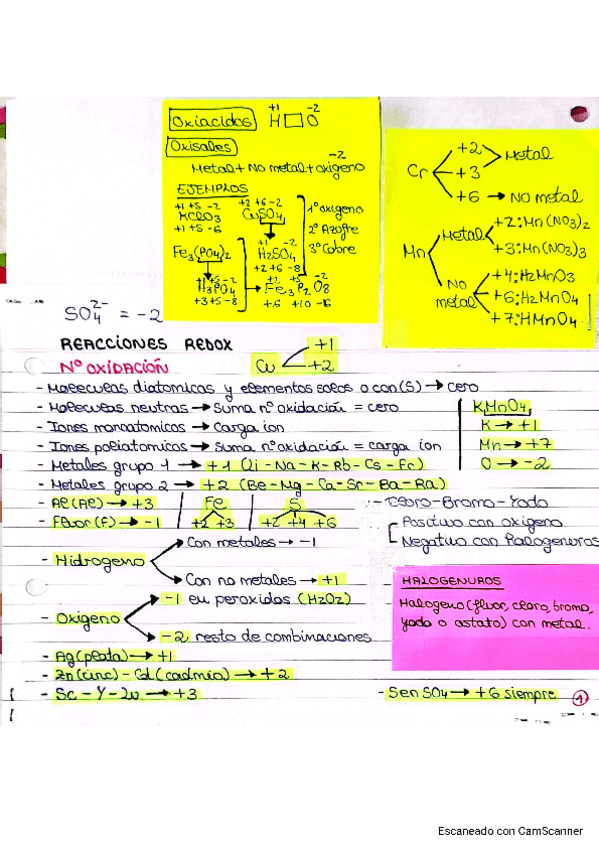 Oxiacidos +1 H□O -2
Oxisales
Metal + No metal + oxigeno -2
EJEMPLOS
+1 +5 -2
KClO3
+1 +5 -6
+2 +6 -2
CuSO4
1º oxigeno
2º Azufre
3º Cobre
Fe3(PO4)2
+1 -2
H2SO4
+2 +6 -8
+1 +5 -2
H3PO4
+3 +5 -8
+2 +5 -2
Fe3 P2 O8
+6 +10 -16
Cr
+2
+3
Metal
+6 → NO metal
Mn
Metal
+2: Mn(NO3)2
+3: Mn(NO3)3
No metal
+4: H2MnO3
+6: H2MnO4
+7: HMnO4
SO4 2- = -2
REACCIONES REDOX
Nº OXIDACIÓN
Cu
+1
+2
- Moleculas diatomicas y elementos solos o con (S) → cero
- Moleculas neutras → Suma nº oxidación = cero
- Iones monoatomicos → Carga ion
- Iones poliatomicos → Suma nº oxidación = carga ion
- Metales grupo 1 → +1 (Li - Na - K - Rb - Cs - Fr)
- Metales grupo 2 → +2 (Be - Mg - Ca - Sr - Ba - Ra)
KMnO4
K → +1
Mn → +7
O → -2
- Al (Al) → +3
- Fluor (F) → -1
Fe
+2 +3
S
+2 +4 +6
- Cloro - Bromo - Yodo
Positivo con oxigeno
Negativo con halogenuros
- Hidrogeno
Con metales → -1
Con no metales → +1
- Oxigeno
-1 en peroxidos (H2O2)
-2 resto de combinaciones
HALOGENUROS
Halogeno (fluor, cloro, bromo,
yodo o astato) con metal.
- Ag (plata) → +1
- Zn (cinc) - Cd (cadmio) → +2
- Sc - Y - Lu → +3
- S en SO4 → +6 siempre
1
Escaneado con CamScanner